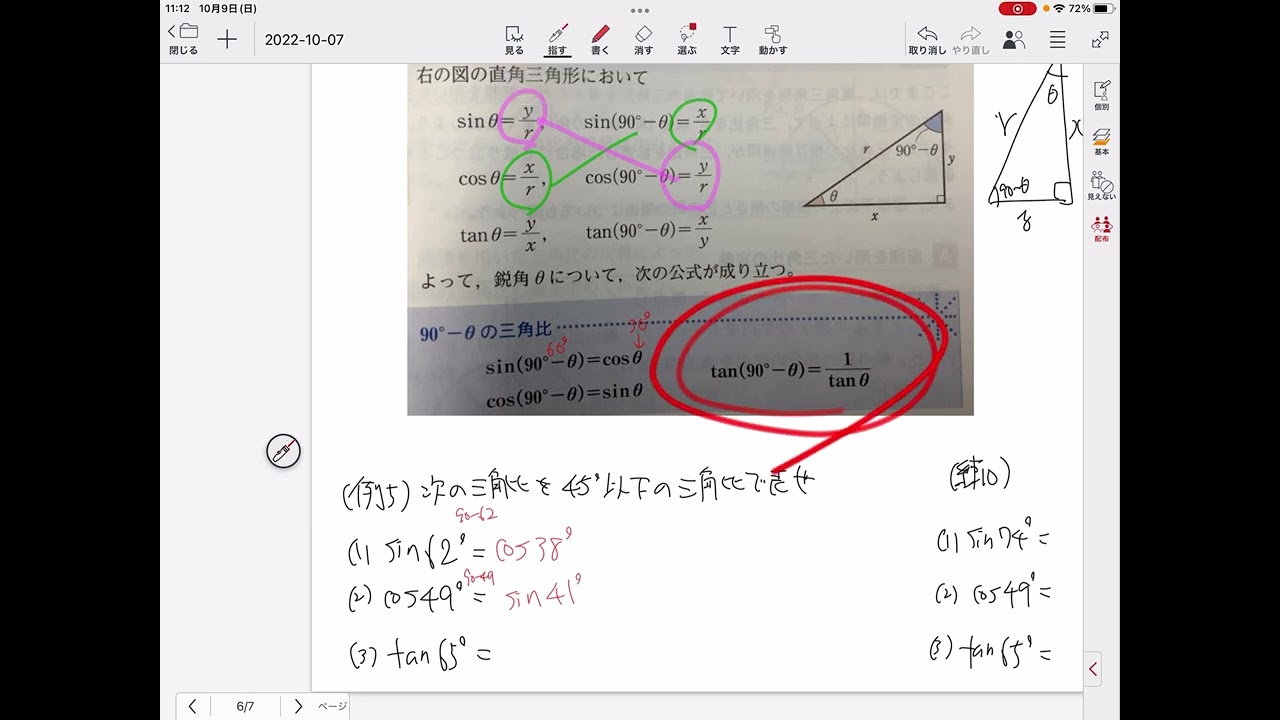 11:12 10月9日(日)
72%
閉じる
2022-10-07
見る 指す 書く 消す 選ぶ 文字 動かす
取り消し やり直し
個別
基本
見えない
配布
右の図の直角三角形において
sinθ=y/r, sin(90°−θ)=x/r
cosθ=x/r, cos(90°−θ)=y/r
tanθ=y/x, tan(90°−θ)=x/y
r 90°−θ y
θ
x
θ
r x
90-θ
y
よって，鋭角θについて，次の公式が成り立つ。
90°−θの三角比
60° 30°
↓
sin(90°−θ)=cosθ
cos(90°−θ)=sinθ
tan(90°−θ)=1/tanθ
(例5) 次の三角比を45°以下の三角比で表せ
90-62
(1) sin62°=cos38°
90-49
(2) cos49°=sin41°
(3) tan65°=
(練10)
(1) sin74°=
(2) cos49°=
(3) tan65°=
6/7 ページ